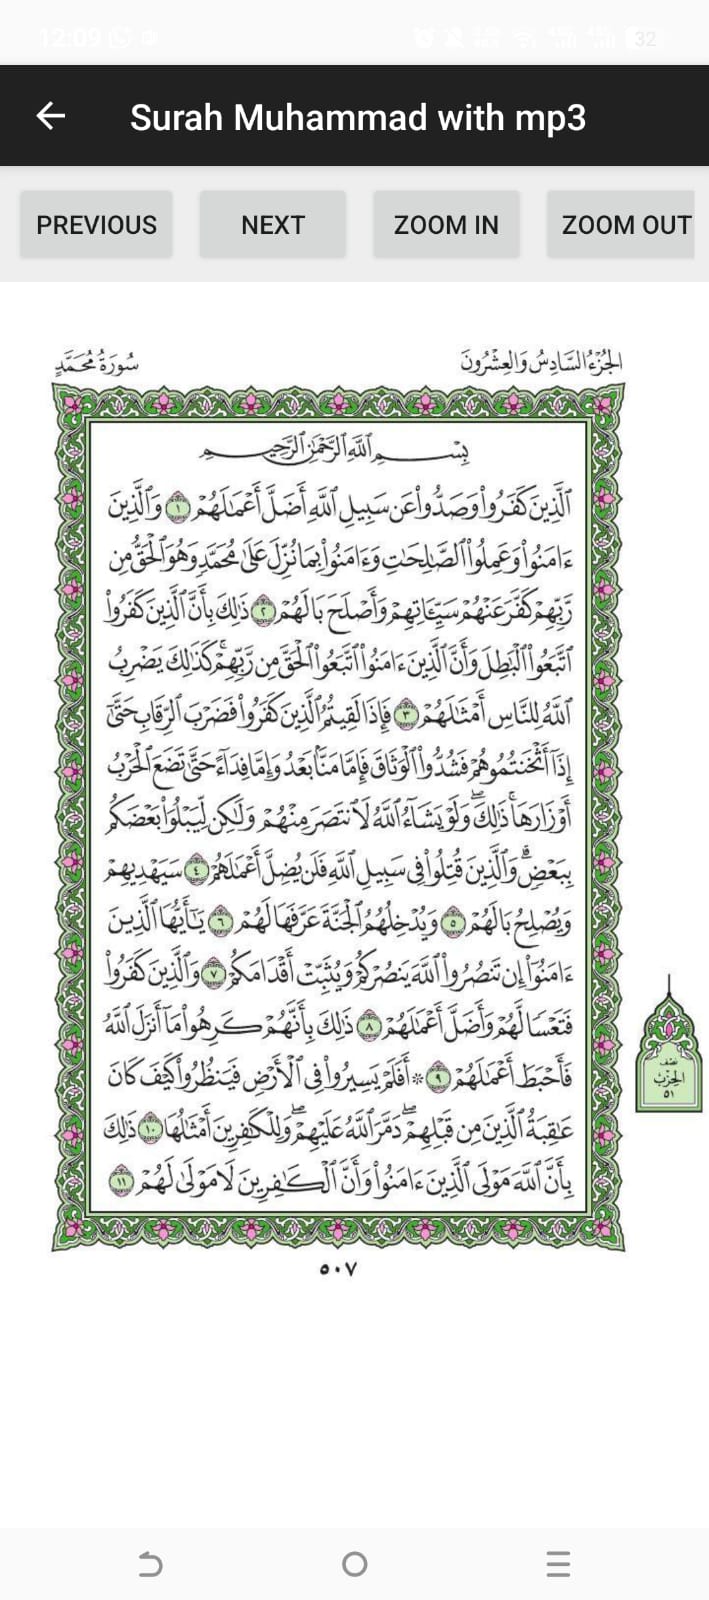 12:09
32
Surah Muhammad with mp3
PREVIOUS NEXT ZOOM IN ZOOM OUT
الجُزْءُ السَّادِسُ وَالعِشْرُونَ سُورَةُ مُحَمَّدٍ
بِسْمِ ٱللَّهِ ٱلرَّحْمَٰنِ ٱلرَّحِيمِ
ٱلَّذِينَ كَفَرُوا۟ وَصَدُّوا۟ عَن سَبِيلِ ٱللَّهِ أَضَلَّ أَعْمَٰلَهُمْ ١ وَٱلَّذِينَ
ءَامَنُوا۟ وَعَمِلُوا۟ ٱلصَّٰلِحَٰتِ وَءَامَنُوا۟ بِمَا نُزِّلَ عَلَىٰ مُحَمَّدٍ وَهُوَ ٱلْحَقُّ مِن
رَّبِّهِمْ كَفَّرَ عَنْهُمْ سَيِّـَٔاتِهِمْ وَأَصْلَحَ بَالَهُمْ ٢ ذَٰلِكَ بِأَنَّ ٱلَّذِينَ كَفَرُوا۟
ٱتَّبَعُوا۟ ٱلْبَٰطِلَ وَأَنَّ ٱلَّذِينَ ءَامَنُوا۟ ٱتَّبَعُوا۟ ٱلْحَقَّ مِن رَّبِّهِمْ ۚ كَذَٰلِكَ يَضْرِبُ
ٱللَّهُ لِلنَّاسِ أَمْثَٰلَهُمْ ٣ فَإِذَا لَقِيتُمُ ٱلَّذِينَ كَفَرُوا۟ فَضَرْبَ ٱلرِّقَابِ حَتَّىٰٓ
إِذَآ أَثْخَنتُمُوهُمْ فَشُدُّوا۟ ٱلْوَثَاقَ فَإِمَّا مَنًّۢا بَعْدُ وَإِمَّا فِدَآءً حَتَّىٰ تَضَعَ ٱلْحَرْبُ
أَوْزَارَهَا ۚ ذَٰلِكَ ۖ وَلَوْ يَشَآءُ ٱللَّهُ لَٱنتَصَرَ مِنْهُمْ وَلَٰكِن لِّيَبْلُوَا۟ بَعْضَكُم
بِبَعْضٍ ۗ وَٱلَّذِينَ قُتِلُوا۟ فِى سَبِيلِ ٱللَّهِ فَلَن يُضِلَّ أَعْمَٰلَهُمْ ٤ سَيَهْدِيهِمْ
وَيُصْلِحُ بَالَهُمْ ٥ وَيُدْخِلُهُمُ ٱلْجَنَّةَ عَرَّفَهَا لَهُمْ ٦ يَٰٓأَيُّهَا ٱلَّذِينَ
ءَامَنُوٓا۟ إِن تَنصُرُوا۟ ٱللَّهَ يَنصُرْكُمْ وَيُثَبِّتْ أَقْدَامَكُمْ ٧ وَٱلَّذِينَ كَفَرُوا۟
فَتَعْسًا لَّهُمْ وَأَضَلَّ أَعْمَٰلَهُمْ ٨ ذَٰلِكَ بِأَنَّهُمْ كَرِهُوا۟ مَآ أَنزَلَ ٱللَّهُ
فَأَحْبَطَ أَعْمَٰلَهُمْ ٩ ۞ أَفَلَمْ يَسِيرُوا۟ فِى ٱلْأَرْضِ فَيَنظُرُوا۟ كَيْفَ كَانَ
عَٰقِبَةُ ٱلَّذِينَ مِن قَبْلِهِمْ ۖ دَمَّرَ ٱللَّهُ عَلَيْهِمْ ۖ وَلِلْكَٰفِرِينَ أَمْثَٰلُهَا ١٠ ذَٰلِكَ
بِأَنَّ ٱللَّهَ مَوْلَى ٱلَّذِينَ ءَامَنُوا۟ وَأَنَّ ٱلْكَٰفِرِينَ لَا مَوْلَىٰ لَهُمْ ١١
نصف
الحزب
٥١
٥٠٧